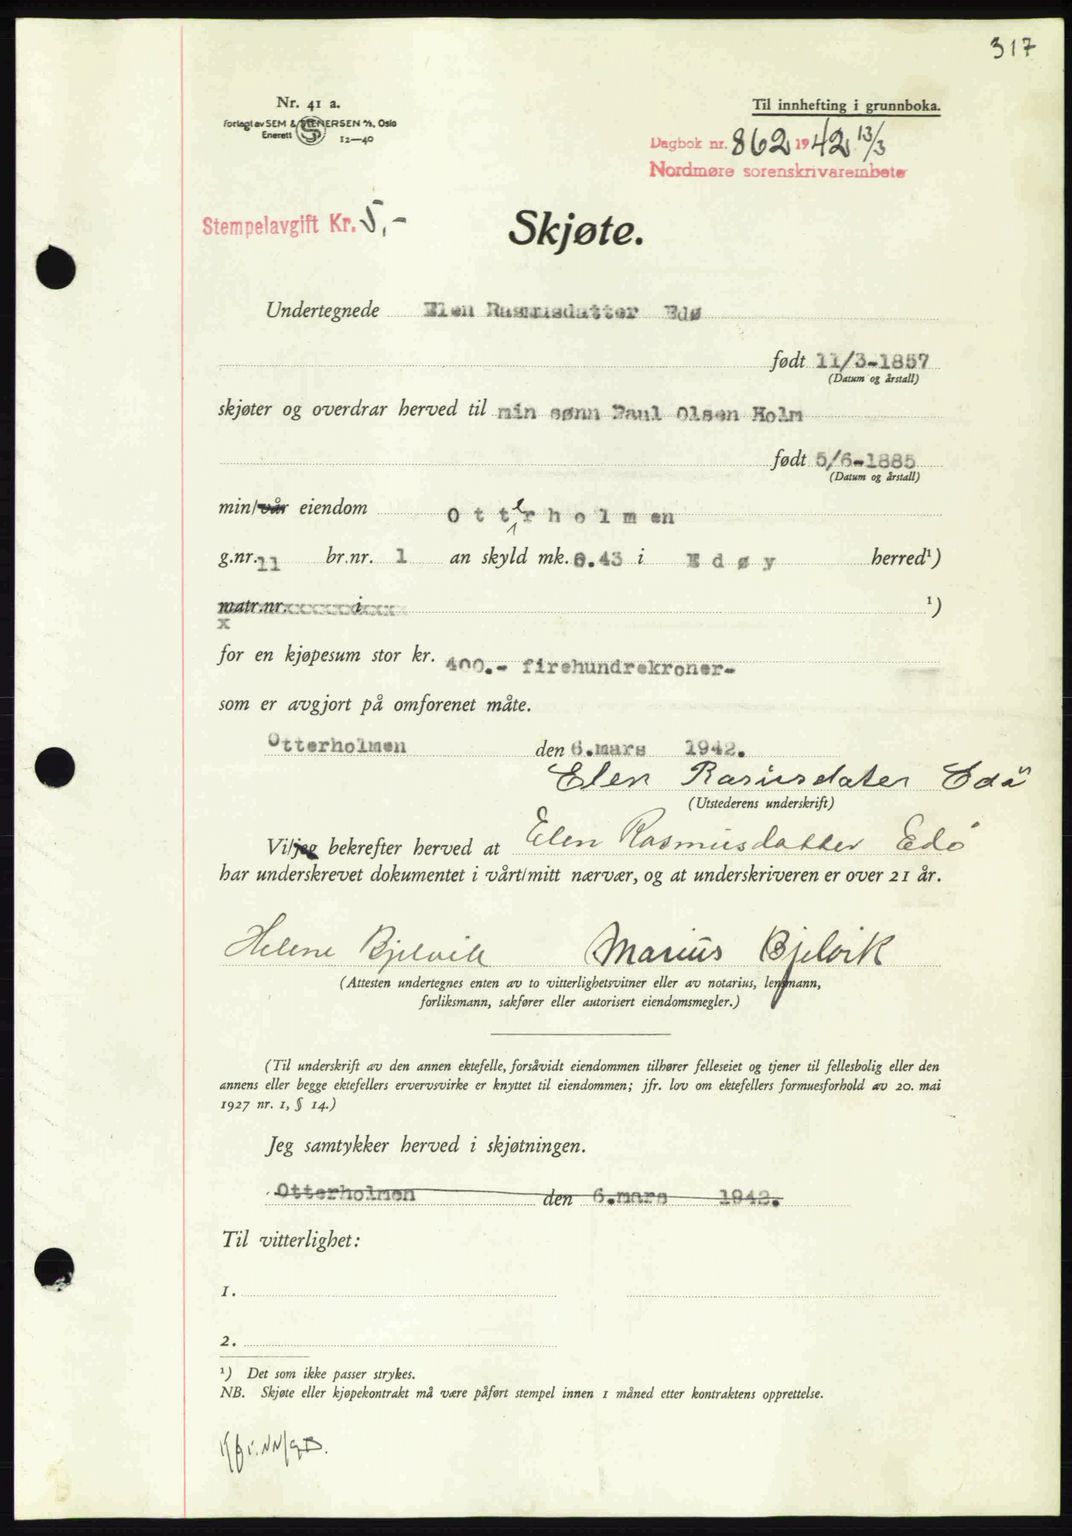 317
Nr. 41 a.
Forlagt av SEM & STENERSEN A/S, Oslo
Enerett 12—40
Til innhefting i grunnboka.
Dagbok nr. 862 1942 13/3
Nordmøre sorenskrivarembete
Stempelavgift Kr. 5,-
Skjøte.
Undertegnede Elen Rasmusdatter Edø
født 11/3-1857
(Datum og årstall)
skjøter og overdrar herved til min sønn Paul Olsen Holm
født 5/6-1885
(Datum og årstall)
min/vår eiendom Otterholmen
g.nr. 11 br.nr. 1 an skyld mk. 0.43 i Edøy herred¹)
matr.nr. i ¹)
for en kjøpesum stor kr. 400.- firehundrekroner-
som er avgjort på omforenet måte.
Otterholmen den 6.mars 1942.
Elen Rasiusdater Edø
(Utstederens underskrift)
Vi/jeg bekrefter herved at Elen Rasmusdatter Edø
har underskrevet dokumentet i vårt/mitt nærvær, og at underskriveren er over 21 år.
Helene Bjelvik Marius Bjelvik
(Attesten undertegnes enten av to vitterlighetsvitner eller av notarius, lensmann,
forliksmann, sakfører eller autorisert eiendomsmegler.)
(Til underskrift av den annen ektefelle, forsåvidt eiendommen tilhører felleseiet og tjener til fellesbolig eller den
annens eller begge ektefellers ervervsvirke er knyttet til eiendommen; jfr. lov om ektefellers formuesforhold av 20. mai
1927 nr. 1, § 14.)
Jeg samtykker herved i skjøtningen.
Otterholmen den 6.mars 1942.
Til vitterlighet:
1.
2.
¹) Det som ikke passer strykes.
NB. Skjøte eller kjøpekontrakt må være påført stempel innen 1 måned etter kontraktens opprettelse.